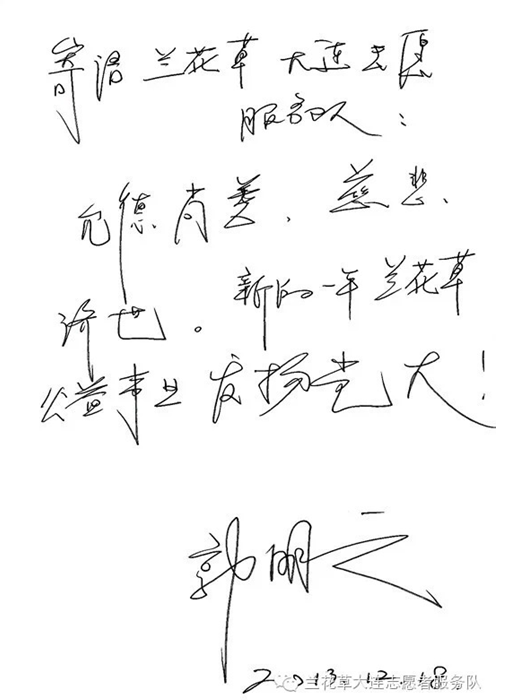 寄语兰花草大连志愿
服务队：
允德尚善、慈悲、
济世。新的一年兰花草
公益事业发扬光大！
郭明云
2013.12.18
兰花草大连志愿者服务队